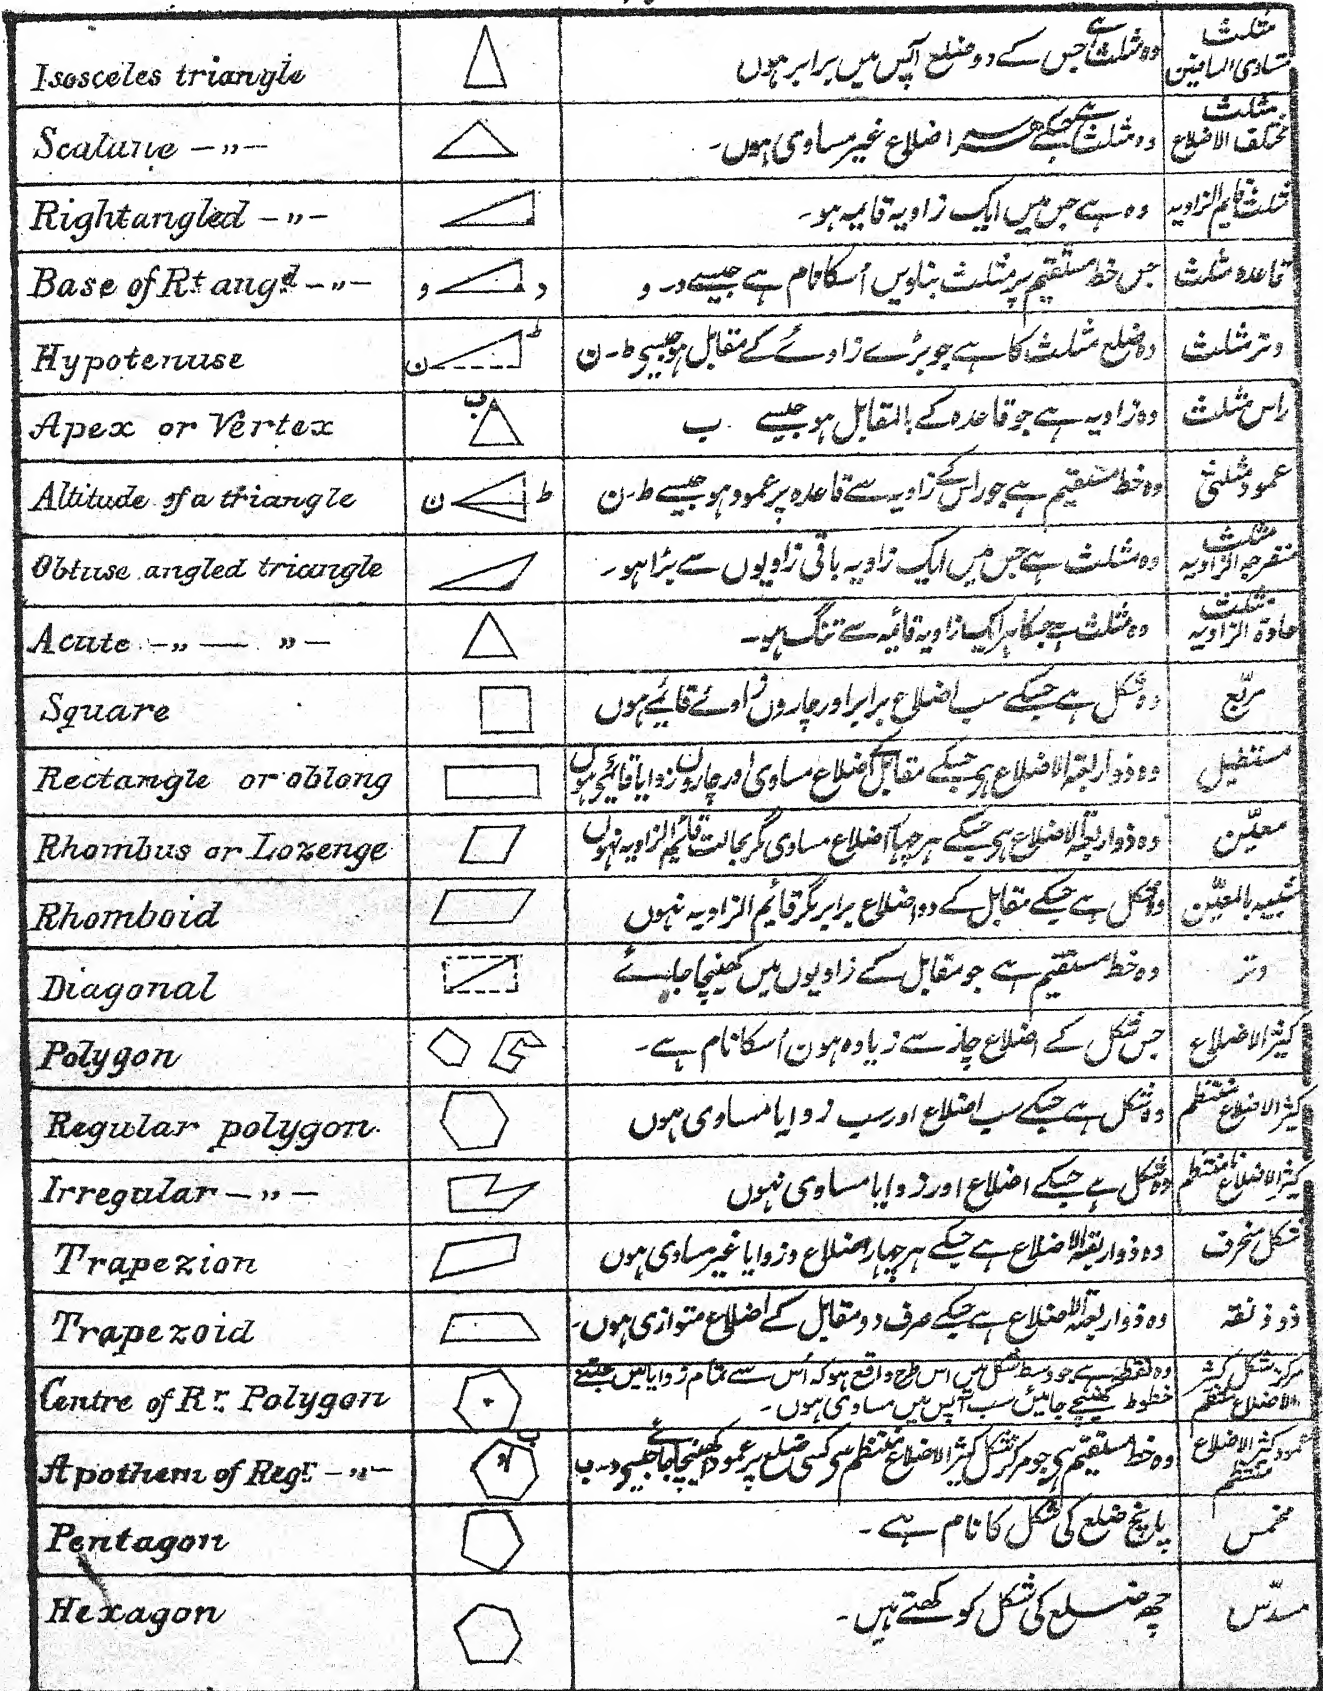 Isosceles triangle
وہ مثلث ہے جس کے دو ضلع آپس میں برابر ہوں
مثلث
متساوی الساقین
Scalune —〃—
وہ مثلث ہے جسکے ہر سہ اضلاع غیر مساوی ہوں۔
مثلث
مختلف الاضلاع
Rightangled —〃—
وہ ہے جس میں ایک زاویہ قایمہ ہو۔
مثلث قایم الزاویہ
Base of Rt angd —〃—
و د
جس خط مستقیم پر مثلث بناویں اُسکا نام ہے جیسے د۔ و
قاعدہ مثلث
Hypotenuse
ن ط
وہ ضلع مثلث کا ہے جو بڑے زاوئے کے مقابل ہو جیسے ط۔ن
وتر مثلث
Apex or Vertex
ب
وہ زاویہ ہے جو قاعدہ کے بالمقابل ہو جیسے ب
راس مثلث
Altitude of a triangle
ن ط
وہ خط مستقیم ہے جو راس کے زاویہ سے قاعدہ پر عمود ہو جیسے ط۔ن
عمود مثلثی
Obtuse angled triangle
وہ مثلث ہے جس میں ایک زاویہ باقی زاویوں سے بڑا ہو۔
مثلث
منفرجہ الزاویہ
Acute —〃— 〃—
وہ مثلث ہے جسکا ہر ایک زاویہ قائمہ سے تنگ ہو۔
مثلث
حادۃ الزاویہ
Square
وہ شکل ہے جسکے سب اضلاع برابر اور چاروں زاوئے قائمے ہوں
مربّع
Rectangle or oblong
وہ ذواربعۃ الاضلاع ہے جسکے مقابل کے اضلاع مساوی اور چاروں زوایا قائمے ہوں
مستطیل
Rhombus or Lozenge
وہ ذواربعۃ الاضلاع ہے جسکے ہر چہار اضلاع مساوی مگر بحالت قائم الزاویہ نہوں
معیّن
Rhomboid
وہ شکل ہے جسکے مقابل کے دو اضلاع برابر مگر قائیم الزاویہ نہوں
شبیہ بالمعیّن
Diagonal
وہ خط مستقیم ہے جو مقابل کے زاویوں میں کھینچا جائے
وتر
Polygon
جس شکل کے اضلاع چار سے زیادہ ہون اُسکا نام ہے۔
کثیر الاضلاع
Regular polygon.
وہ شکل ہے جسکے سب اضلاع اور سب زوایا مساوی ہوں
کثیر الاضلاع منتظم
Irregular —〃—
وہ شکل ہے جسکے اضلاع اور زوایا مساوی نہوں
کثیر الاضلاع نا منتظم
Trapezion
وہ ذواربعۃ الاضلاع ہے جسکے ہر چہار اضلاع و زوایا غیر مساوی ہوں
شکل منحرف
Trapezoid
وہ ذواربعۃ الاضلاع ہے جسکے صرف دو مقابل کے اضلاع متوازی ہوں۔
ذو ذنقہ
Centre of Rr. Polygon
وہ نقطہ ہے جو وسط شکل میں اس طرح واقع ہو کہ اُس سے تمام زوایا میں جتنے
خطوط کھینچے جائیں سب آپس میں مساوی ہوں۔
مرکز شکل کثیر
الاضلاع منتظم
Apothem of Regr. —〃—
ب د
وہ خط مستقیم ہے جو مرکز شکل کثیر الاضلاع منتظم سے کسی ضلع پر عمود کھینچا جائے جیسے د۔ب
عمود کثیر الاضلاع
منتظم
Pentagon
پانچ ضلع کی شکل کا نام ہے۔
مخمس
Hexagon
چھہ ضلع کی شکل کو کہتے ہیں۔
مسدّس